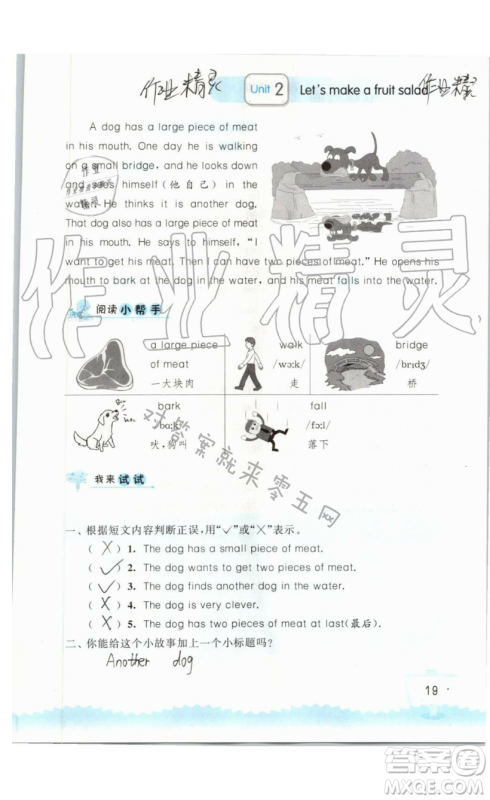 作业精灵
Unit 2 Let's make a fruit salad
作业精灵
A dog has a large piece of meat
in his mouth. One day he is walking
on a small bridge, and he looks down
and sees himself (他自己) in the
water. He thinks it is another dog.
That dog also has a large piece of meat
in his mouth. He says to himself, "I
want to get his meat. Then I can have two pieces of meat." He opens his
mouth to bark at the dog in the water, and his meat falls into the water.
作业精灵
阅读小帮手
a large piece
of meat
一大块肉
walk
/wɔ:k/
走
bridge
/brɪdʒ/
桥
bark
/bɑ:k/
吠，狗叫
fall
/fɔ:l/
落下
对答案就来零五网
我来试试
一、根据短文内容判断正误，用“✓”或“×”表示。
( X ) 1. The dog has a small piece of meat.
( ✓ ) 2. The dog wants to get two pieces of meat.
( ✓ ) 3. The dog finds another dog in the water.
( X ) 4. The dog is very clever.
( X ) 5. The dog has two pieces of meat at last (最后).
二、你能给这个小故事加上一个小标题吗？
Another dog
19
答案圈
MXQE.COM